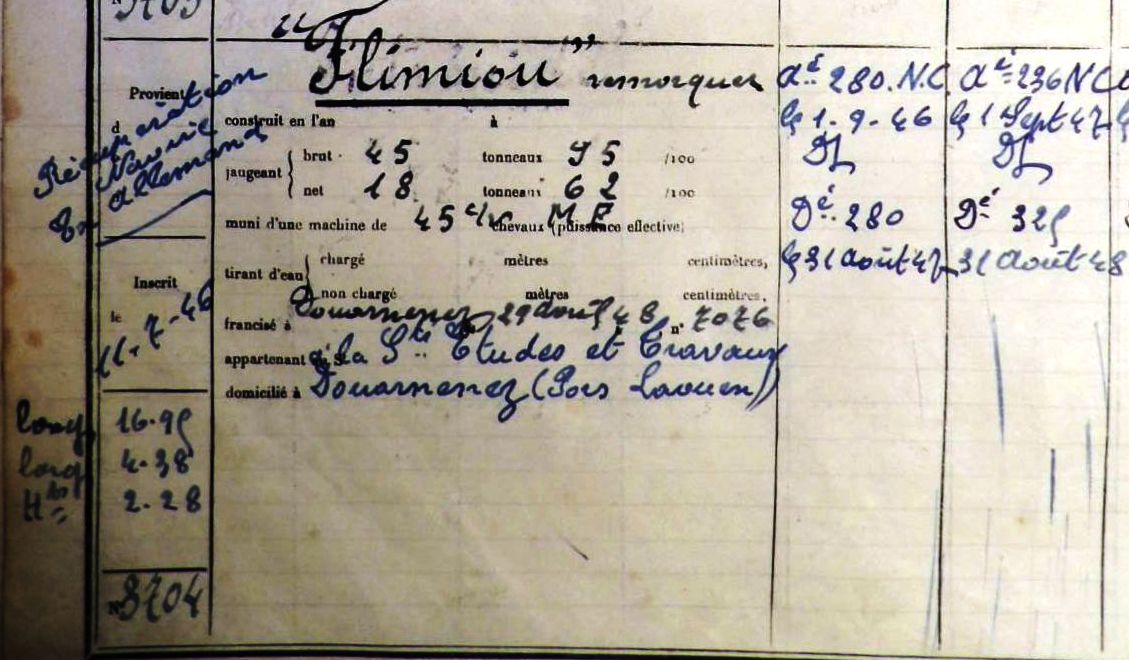 "Flimiou" remorqueur
Provient
d
Récupération
Navire
Allemand
construit en l'an à
jaugeant { brut 45 tonneaux 95 /100
net 18 tonneaux 62 /100
muni d'une machine de 45 c/v chevaux (puissance effective)
tirant d'eau { chargé mètres centimètres,
non chargé mètres centimètres,
Inscrit
le
11-7-46
francisé à Douarnenez 29 août 48 n° 7076
appartenant à la Sté Etudes et Travaux
domicilié à Douarnenez (Pors Laouen)
long 16.95
larg 4.38
Htr 2.28
N° 3704
Aé 280. N.C.
le 1-9-46
Dé 280
le 31 août 47
Aé 236 NC
le 1 Sept 47
Dé 325
31 août 48